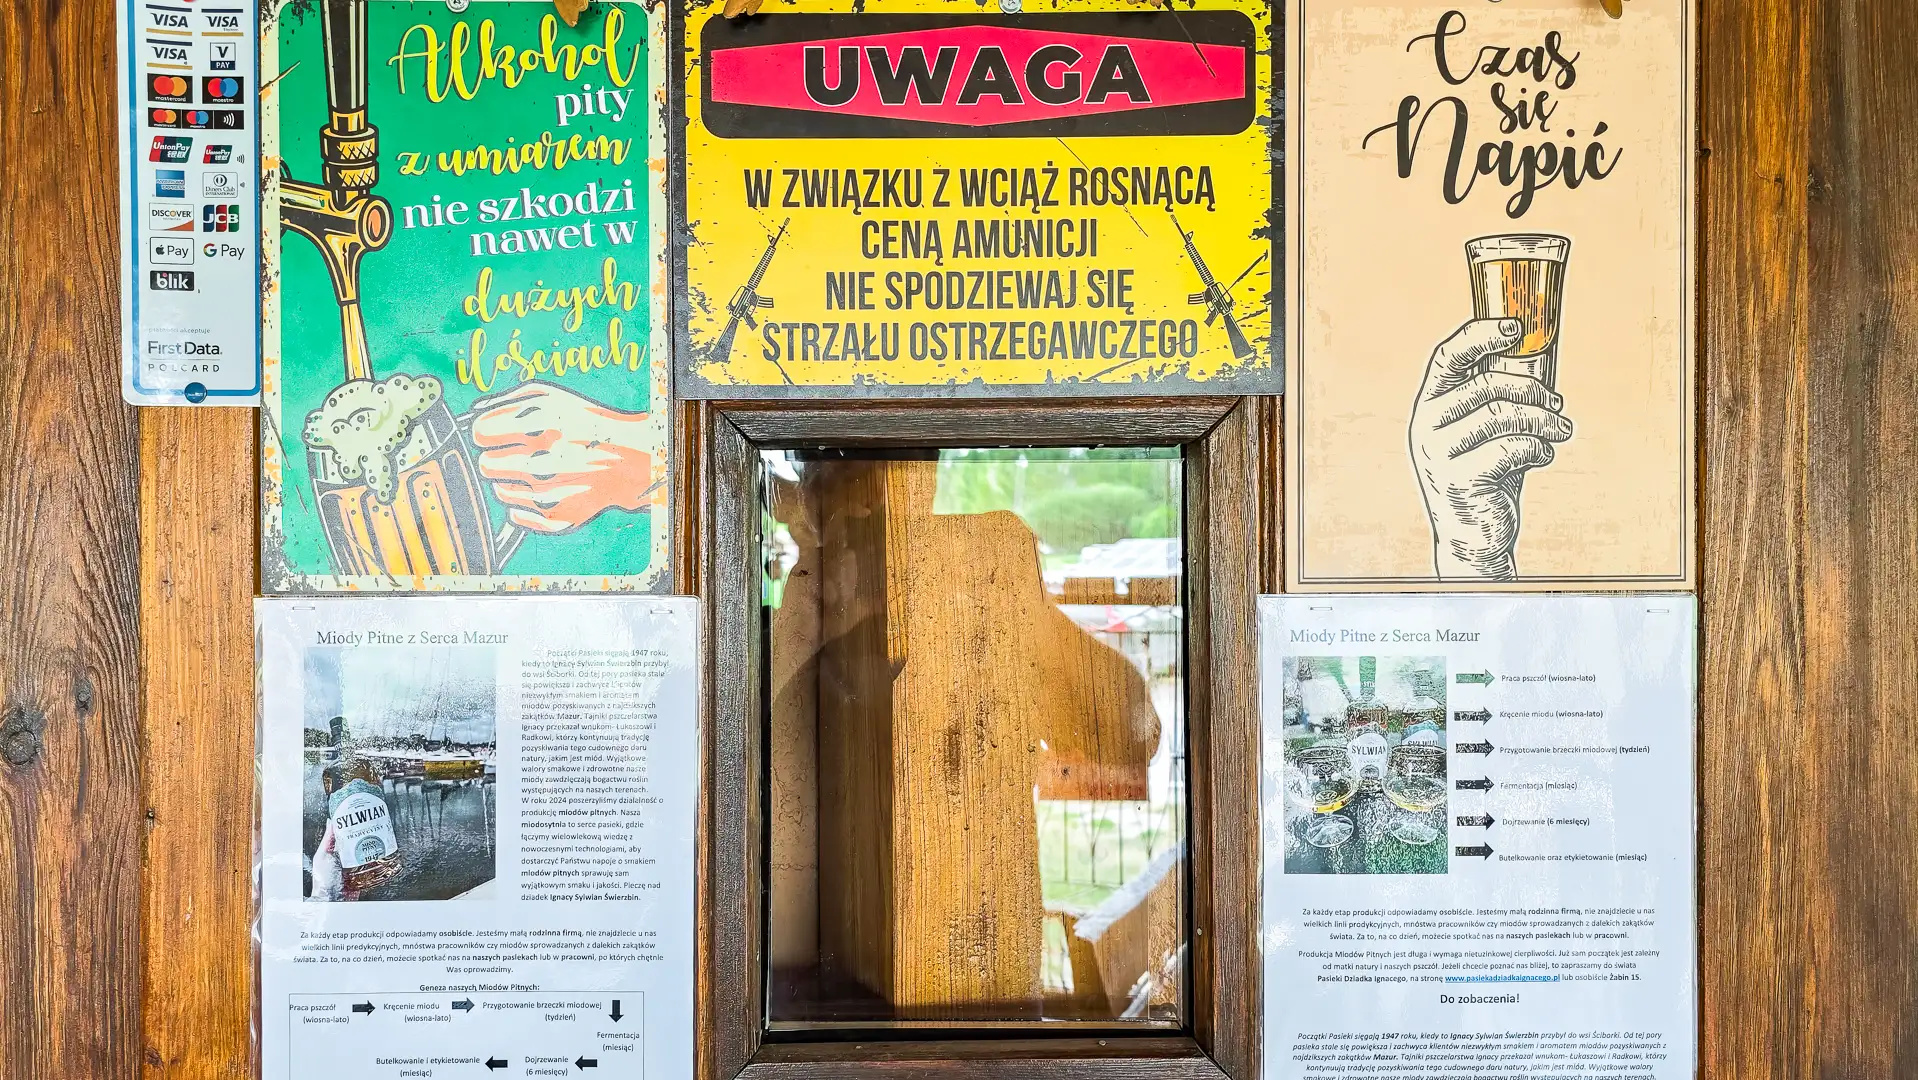 VISA VISA
VISA V PAY
mastercard maestro
mastercard maestro
UnionPay UnionPay
Diners Club
INTERNATIONAL
DISCOVER JCB
Pay G Pay
blik
akceptuje
First Data.
POLCARD
Alkohol
pity
z umiarem
nie szkodzi
nawet w
dużych
ilościach
UWAGA
W ZWIĄZKU Z WCIĄŻ ROSNĄCĄ
CENĄ AMUNICJI
NIE SPODZIEWAJ SIĘ
STRZAŁU OSTRZEGAWCZEGO
Czas
się
Napić
Miody Pitne z Serca Mazur
Początki Pasieki sięgają 1947 roku,
kiedy to Ignacy Sylwian Świerzbin przybył
do wsi Ściborki. Od tej pory pasieka stale
się powiększa i zachwyca klientów
niezwykłym smakiem i aromatem
miodów pozyskiwanych z najdzikszych
zakątków Mazur. Tajniki pszczelarstwa
Ignacy przekazał wnukom- Łukaszowi i
Radkowi, którzy kontynuują tradycję
pozyskiwania tego cudownego daru
natury, jakim jest miód. Wyjątkowe
walory smakowe i zdrowotne nasze
miody zawdzięczają bogactwu roślin
występujących na naszych terenach.
W roku 2024 poszerzyliśmy działalność o
produkcję miodów pitnych. Nasza
miodosytnia to serce pasieki, gdzie
łączymy wielowiekową wiedzę z
nowoczesnymi technologiami, aby
dostarczyć Państwu napoje o smakiem
miodów pitnych sprawuję sam
wyjątkowym smaku i jakości. Pieczę nad
dziadek Ignacy Sylwian Świerzbin.
SYLWIAN
TRADYCYJNY
MIÓD
PITNY
1947
Za każdy etap produkcji odpowiadamy osobiście. Jesteśmy małą rodzinna firmą, nie znajdziecie u nas
wielkich linii predykcyjnych, mnóstwa pracowników czy miodów sprowadzanych z dalekich zakątków
świata. Za to, na co dzień, możecie spotkać nas na naszych pasiekach lub w pracowni, po których chętnie
Was oprowadzimy.
Geneza naszych Miodów Pitnych:
Praca pszczół (wiosna-lato)
Kręcenie miodu (wiosna-lato)
Przygotowanie brzeczki miodowej (tydzień)
Fermentacja (miesiąc)
Dojrzewanie (6 miesięcy)
Butelkowanie i etykietowanie (miesiąc)
Miody Pitne z Serca Mazur
SYLWIAN
Praca pszczół (wiosna-lato)
Kręcenie miodu (wiosna-lato)
Przygotowanie brzeczki miodowej (tydzień)
Fermentacja (miesiąc)
Dojrzewanie (6 miesięcy)
Butelkowanie oraz etykietowanie (miesiąc)
Za każdy etap produkcji odpowiadamy osobiście. Jesteśmy małą rodzinna firmą, nie znajdziecie u nas
wielkich linii predykcyjnych, mnóstwa pracowników czy miodów sprowadzanych z dalekich zakątków
świata. Za to, na co dzień, możecie spotkać nas na naszych pasiekach lub w pracowni.
Produkcja Miodów Pitnych jest długa i wymaga nietuzinkowej cierpliwości. Już sam początek jest zależny
od matki natury i naszych pszczół. Jeżeli chcecie poznać nas bliżej, to zapraszamy do świata
Pasieki Dziadka Ignacego, na stronę www.pasiekadziadkaignacego.pl lub osobiście Żabin 15.
Do zobaczenia!
Początki Pasieki sięgają 1947 roku, kiedy to Ignacy Sylwian Świerzbin przybył do wsi Ściborki. Od tej pory
pasieka stale się powiększa i zachwyca klientów niezwykłym smakiem i aromatem miodów pozyskiwanych z
najdzikszych zakątków Mazur. Tajniki pszczelarstwa Ignacy przekazał wnukom- Łukaszowi i Radkowi, którzy
kontynuują tradycję pozyskiwania tego cudownego daru natury, jakim jest miód. Wyjątkowe walory
smakowe i zdrowotne nasze miody zawdzięczają bogactwu roślin występujących na naszych terenach.